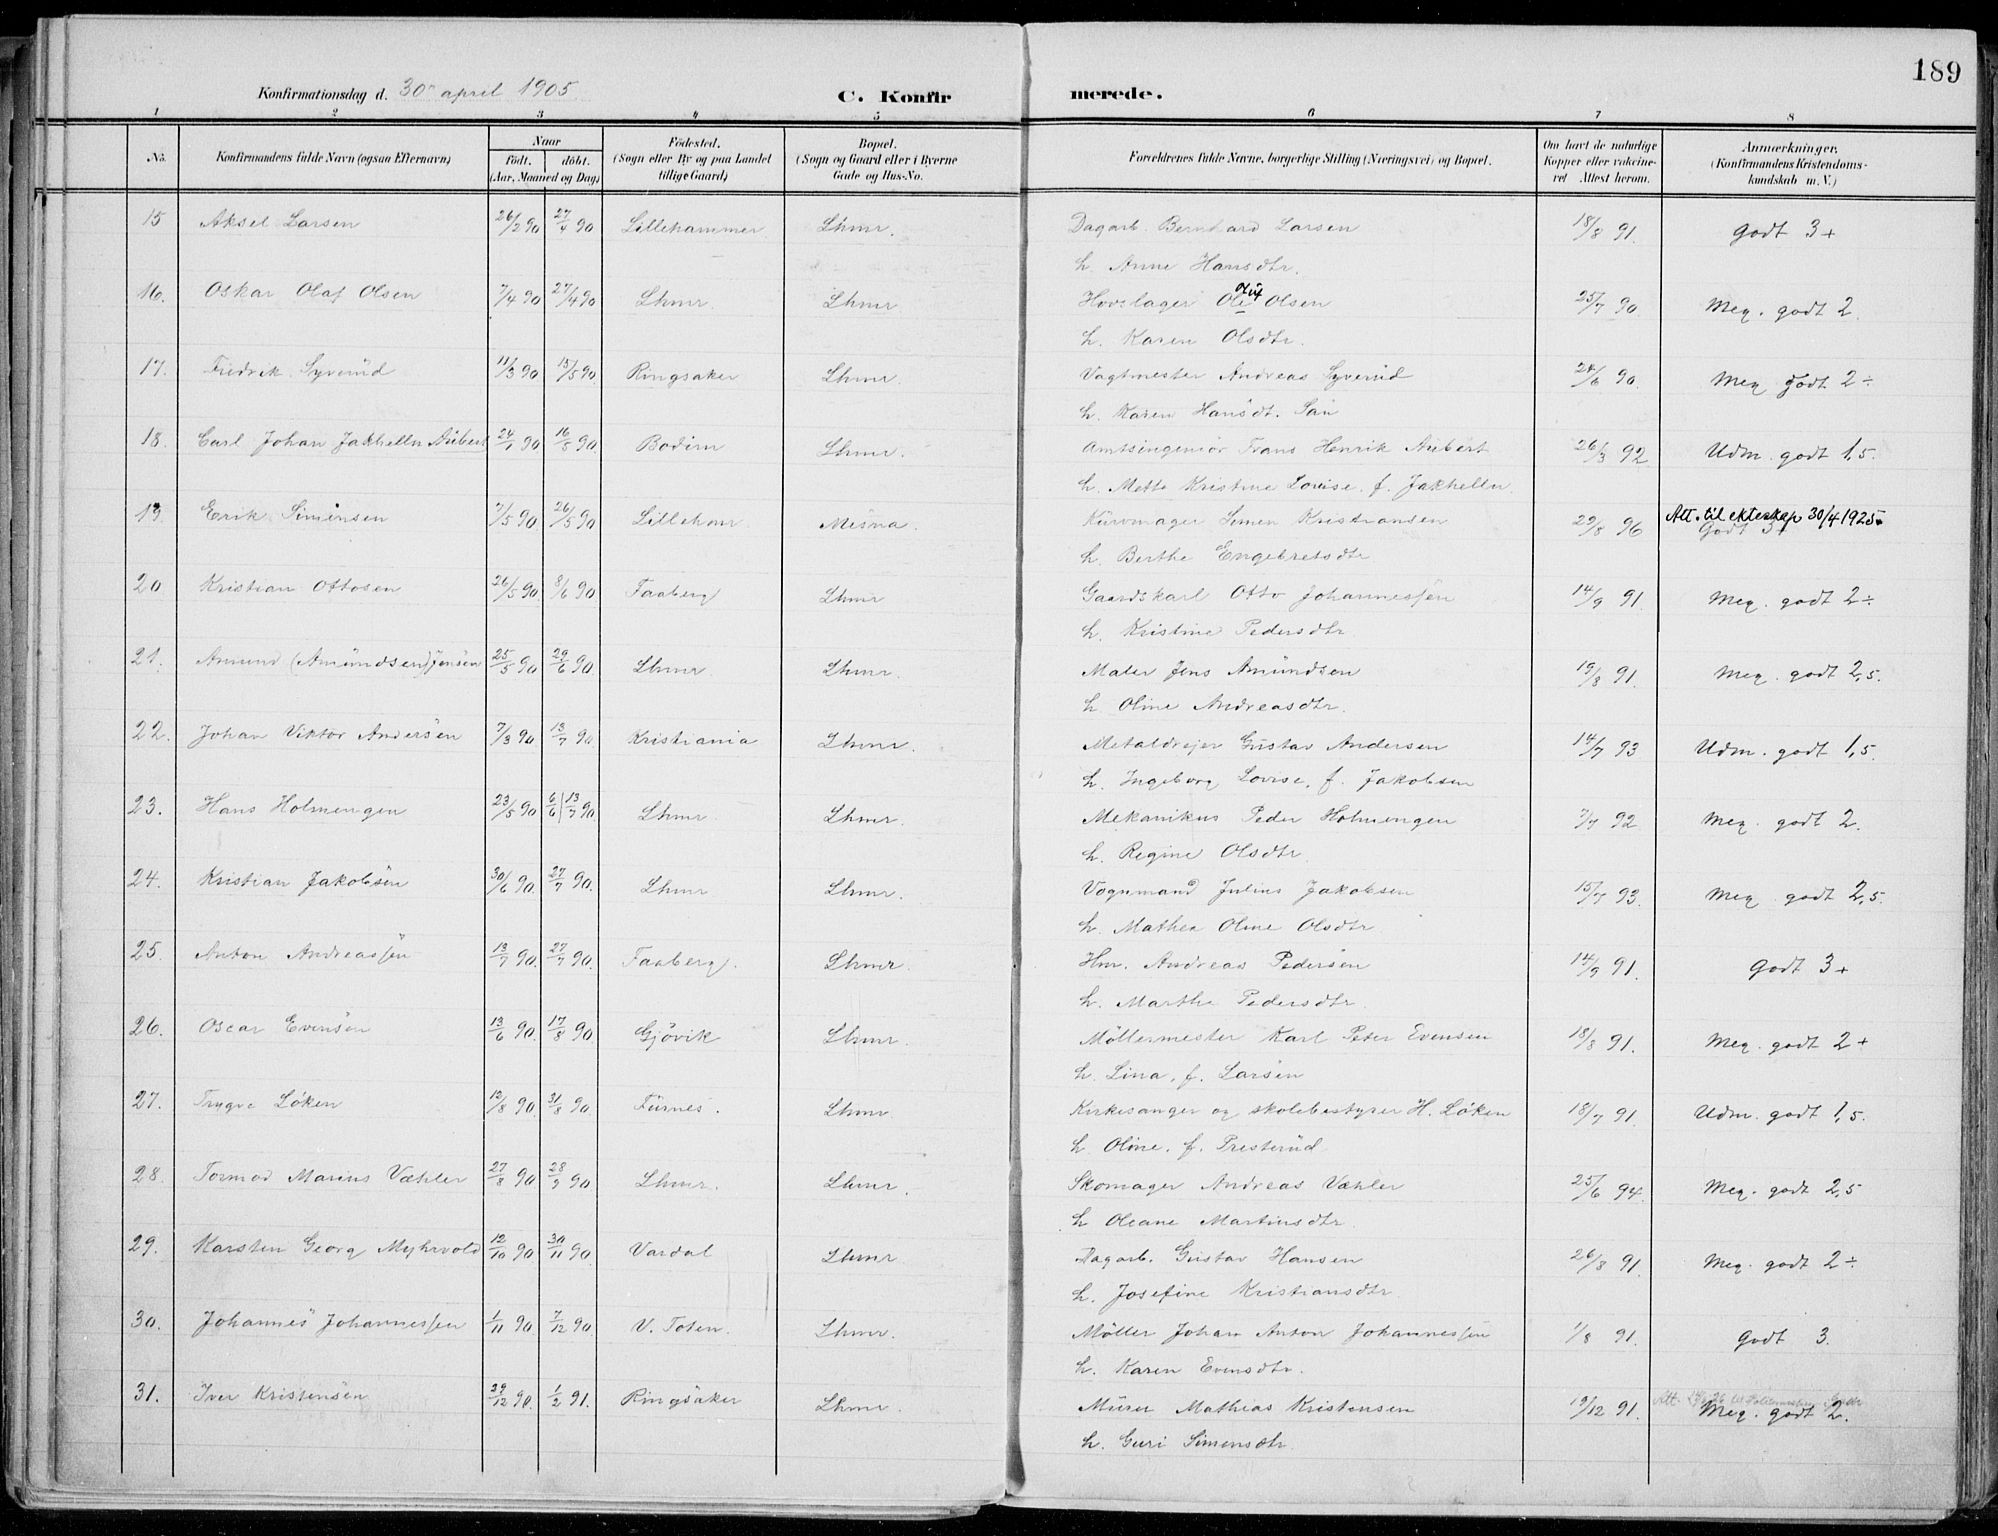 189
Konfirmationsdag d. 30 april 1905 C. Konfirmerede.
1 2 3 4 5 6 7 8
No. Konfirmandens fulde Navn (ogsaa Efternavn) Naar födt. döbt. (Aar, Maaned og Dag) Födested. (Sogn eller By og paa Landet tillige Gaard) Bopæl. (Sogn og Gaard eller i Byerne Gade og Hus-No. Forældrenes fulde Navne, borgerlige Stilling (Næringsvei) og Bopæl. Om havt de naturlige Kopper eller vaccineret. Attest herom. Anmærkninger. (Konfirmandens Kristendomskundskab m. V.)
15 Aksel Larsen 26/2 90 27/4 90 Lillehammer Lhmr. Dagarb. Bernhard Larsen 18/8 91. Godt 3+
h. Anne Hansdtr.
16. Oskar Olaf Olsen 7/4 90 27/4 90 Lhmr. Lhmr. Hovslager Oluf Olsen 25/7 90. Meg. godt 2.
h. Karen Olsdtr.
17. Fredrik Syverüd 11/3 90 15/5 90. Ringsaker Lhmr. Vagtmester Andreas Syverüd 24/6 90. Meg godt 2÷
h. Karen Hansdt.
18. Carl Johan Jakhelln Aübert 24/1 90 16/5 90. Bodin Lhmr. Amtsingeniör Frans Henrik Aübert 26/3 92 Udm. godt 1,5.
h. Mette Kristine Lovise f. Jakhelln.
19. Erik Simensen 7/5 90 26/5 90 Lilleham Mesna. Kürvmager Simen Kristiansen 29/8 96 Att. til ekteskap 30/4 1925. Godt 3+
h. Berthe Engebretsdtr
20 Kristian Ottosen 26/5 90. 8/6 90 Faaberg Lhmr Gaardskarl Otto Johannesſen 14/9 91. Meg. godt 2÷
h. Kristine Pedersdtr.
21. Amund (Amündsen) Jensen 25/5 90 29/6 90. Lhmr. Lhmr. Maler Jens Amündsen 19/8 91. Meg. godt 2,5.
h. Oline Andreasdtr.
22. Johan Viktor Andersen 7/3 90 13/7 90. Kristiania Lhmr. Metaldreier Güstav Andersen 14/7 93 Udm. godt 1,5
h. Ingeborg Lovise, f. Jakobsen
23. Hans Holmengen 23/5 90 6/6 | 13/7 90 Lhmr. Lhmr. Mekanikus Peder Holmengen 7/7 92 Meg. godt 2.
h. Regine Olsdtr.
24. Kristian Jakobsen 30/6 90. 27/7 90. Lhmr Lhmr. Vognmand Julius Jakobsen 15/7 93. Meg. godt 2,5.
h. Mathea Oline Olsdtr
25. Anton Andreasſen 13/7 90. 27/7 90. Faaberg. Lhmr. Hm. Andreas Pedersen 14/9 91. Godt 3+
h. Marthe Pedersdtr.
26. Oscar Evensen 13/6 90. 17/8 90. Gjövik Lhmr. Möllermester Karl Peter Evensen 18/8 91. Meg. godt 2+
h. Lina, f. Larsen
27. Trygve Löken 12/8 90. 31/8 90. Fürnes. Lhmr. Kirkesanger og skolebestyrer H. Löken 18/7 91. Udm. godt 1,5.
h. Oline, f. Presterüd
28. Tormod Marius Væhler 27/8 90 28/9 90 Lhmr. Lhmr. Skomager Andreas Væhler 25/6 94. Meg. godt 2,5
h Oleane Martinsdtr.
29. Karsten Georg Myhrvold 12/10 90 30/11 90. Vardal Lhmr Dagarb. Güstav Hansen 26/8 91. Meg. godt 2÷
h. Josefine Kristiansdtr.
30. Johannes Johannesſen 1/11 90. 7/12 90 V. Toten. Lhmr. Möller Johan Anton Johannesſen 1/8 91. Godt 3.
h. Karen Evensdtr.
31. Iver Kristensen 29/12 90. 1/2 91. Ringsaker Lhmr. Mürer Mathias Kristensen 19/12 91. Att. Meg. godt 2.
h. Guri Simensdtr.